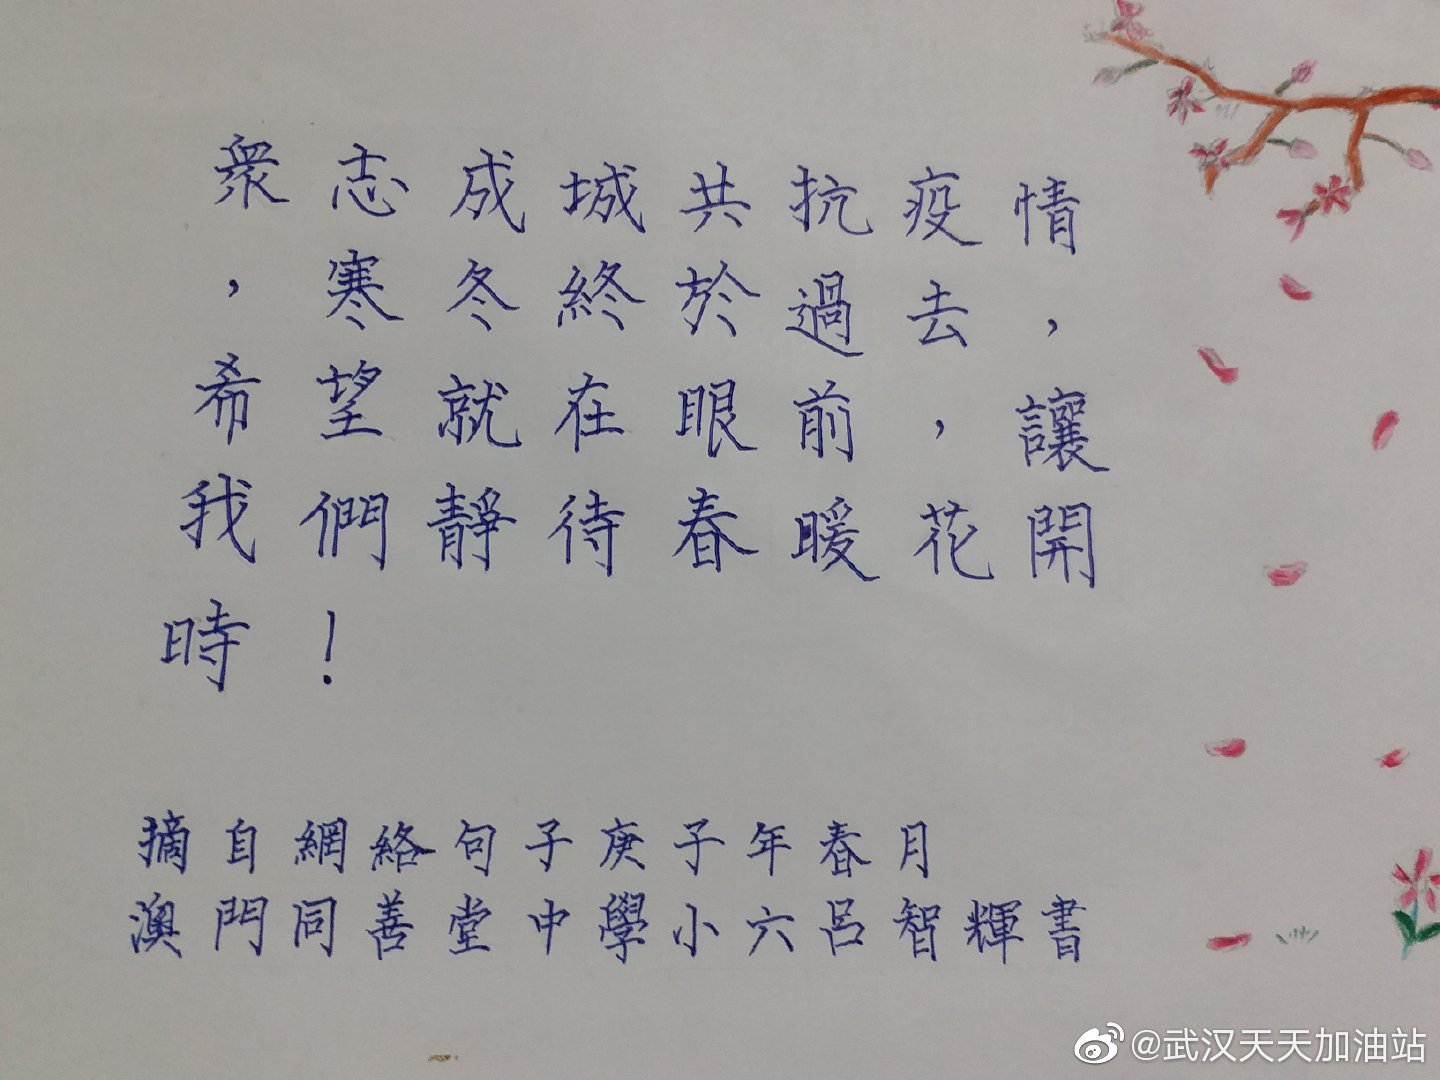 眾志成城共抗疫情
，寒冬終於過去，
希望就在眼前，讓
我們靜待春暖花開
時！
摘自網絡句子庚子年春月
澳門同善堂中學小六呂智輝書
@武汉天天加油站